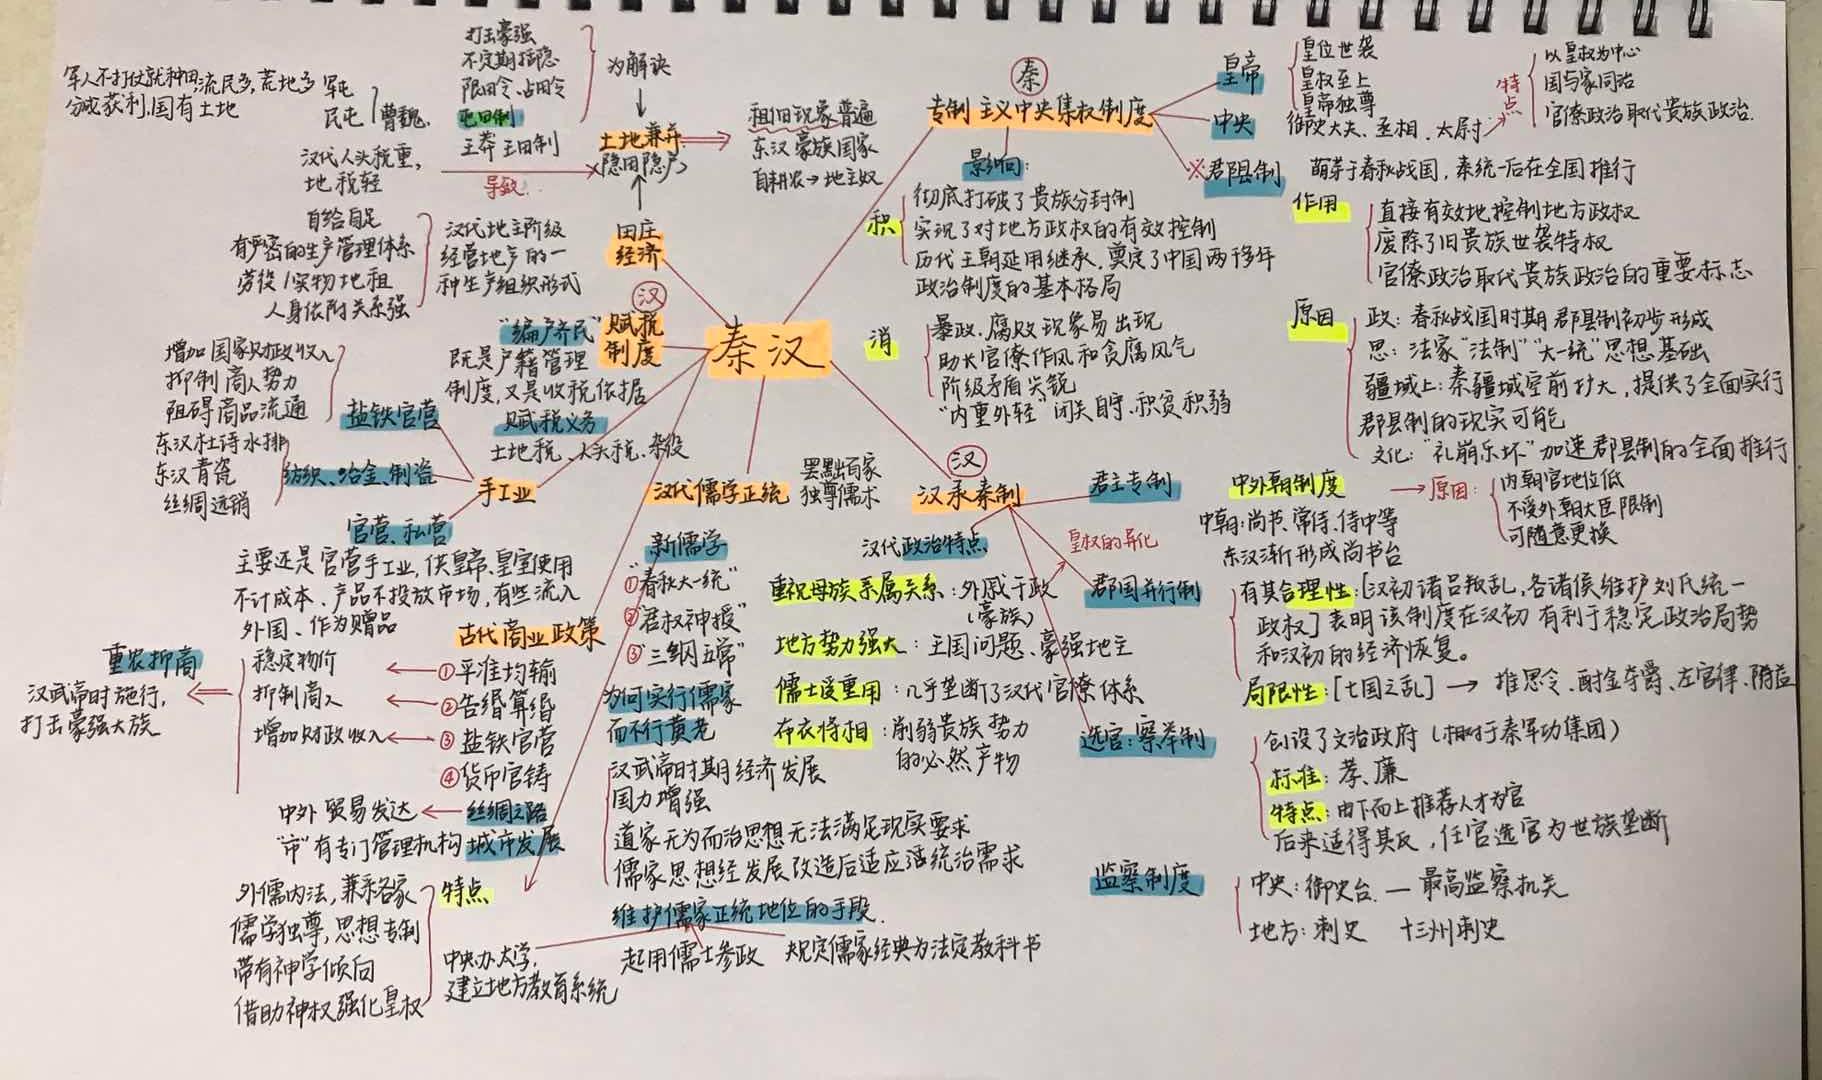 秦汉
秦
专制主义中央集权制度
皇帝
皇位世袭
皇权至上
皇帝独尊
中央
御史大夫、丞相、太尉
特点
以皇权为中心
国与家同治
官僚政治取代贵族政治.
※郡县制
萌芽于春秋战国,秦统一后在全国推行
作用
直接有效地控制地方政权
废除了旧贵族世袭特权
官僚政治取代贵族政治的重要标志
原因
政:春秋战国时期郡县制初步形成
思:法家“法制”“大一统”思想基础
疆域上:秦疆域空前扩大,提供了全面实行
郡县制的现实可能
文化:“礼崩乐坏”加速郡县制的全面推行
影响:
积
彻底打破了贵族分封制
实现了对地方政权的有效控制
历代王朝延用继承,奠定了中国两千多年
政治制度的基本格局
消
暴政、腐败现象易出现
助长官僚作风和贪腐风气
阶级矛盾尖锐
“内重外轻”闭关自守、积贫积弱
汉
汉承秦制
君主专制
中外朝制度
中朝:尚书、常侍、侍中等
东汉渐形成尚书台
原因:
内朝官地位低
不受外朝大臣限制
可随意更换
皇权的异化
郡国并行制
有其合理性:[汉初诸吕叛乱,各诸侯维护刘氏统一
政权]表明该制度在汉初有利于稳定政治局势
和汉初的经济恢复。
局限性:[七国之乱]→推恩令、酎金夺爵、左官律、附益
选官:察举制
创设了文治政府(相对于秦军功集团)
标准:孝、廉
特点:由下而上推荐人才为官
后来适得其反,任官选官为世族垄断
监察制度
中央:御史台—最高监察机关
地方:刺史 十三州刺史
汉代政治特点
重视母族亲属关系:外戚干政
(豪族)
地方势力强大:王国问题、豪强地主
儒士受重用:几乎垄断了汉代官僚体系
布衣将相:削弱贵族势力
的必然产物
汉代儒学正统
罢黜百家
独尊儒术
新儒学
①“春秋大一统”
②“君权神授”
③“三纲五常”
为何实行儒家
而不行黄老
汉武帝时期经济发展
国力增强
道家无为而治思想无法满足现实要求
儒家思想经发展改造后适应适统治需求
维护儒家正统地位的手段.
中央办太学,
建立地方教育系统
起用儒士参政
规定儒家经典为法定教科书
特点
外儒内法,兼采各家
儒学独尊,思想专制
带有神学倾向
借助神权强化皇权
田庄
经济
汉代地主阶级
经营地产的一
种生产组织形式
自给自足
有严密的生产管理体系
劳役/实物地租
人身依附关系强
土地兼并
(隐田隐户)
为解决
打击豪强
不定期括隐
限田令、占田令
屯田制
王莽王田制
军屯
民屯
曹魏.
军人不打仗就种田,流民多,荒地多
分成获利,国有土地
汉代人头税重,
地税轻
导致
租佃现象普遍
东汉豪族国家
自耕农→地主奴
汉
赋税
制度
“编户齐民”
既是户籍管理
制度,又是收税依据
赋税义务
土地税、人头税、杂役
手工业
盐铁官营
增加国家财政收入
抑制商人势力
阻碍商品流通
纺织、冶金、制瓷
东汉杜诗水排
东汉青瓷
丝绸远销
官营、私营
主要还是官营手工业,供皇帝、皇室使用
不计成本、产品不投放市场,有些流入
外国、作为赠品
古代商业政策
①平准均输
②告缗算缗
③盐铁官营
④货币官铸
稳定物价
抑制商人
增加财政收入
重农抑商
汉武帝时施行,
打击豪强大族
中外贸易发达←丝绸之路
“市”有专门管理机构 城市发展